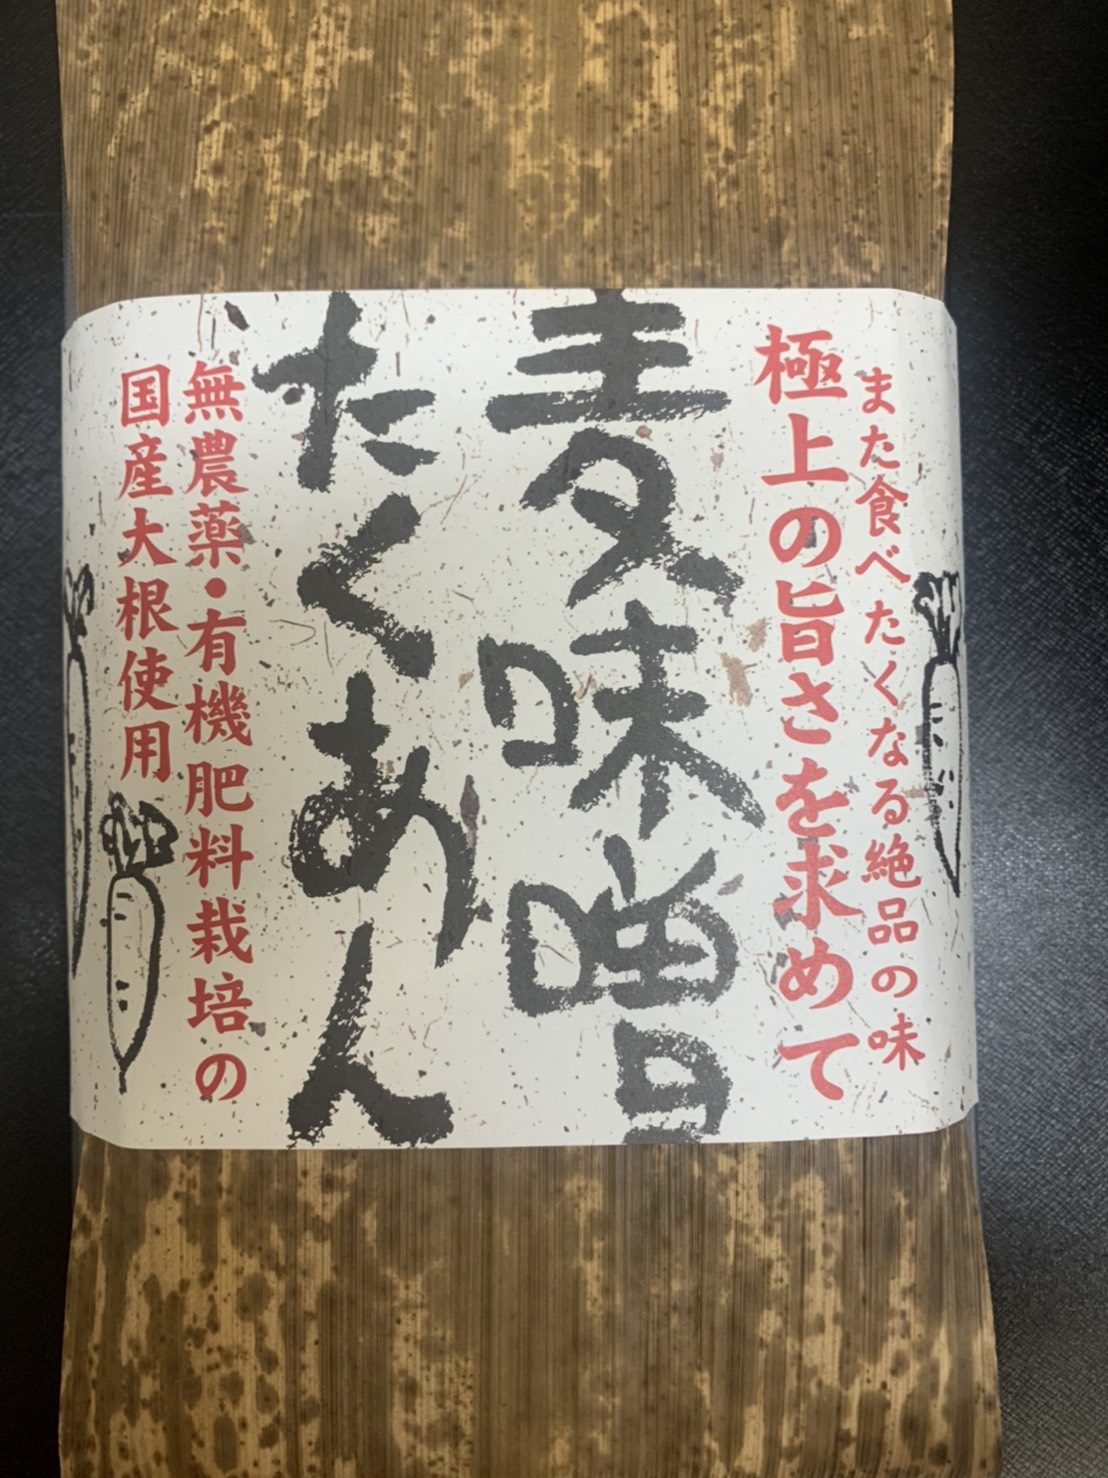 また食べたくなる絶品の味
極上の旨さを求めて
麦味噌
たくあん
無農薬・有機肥料栽培の
国産大根使用